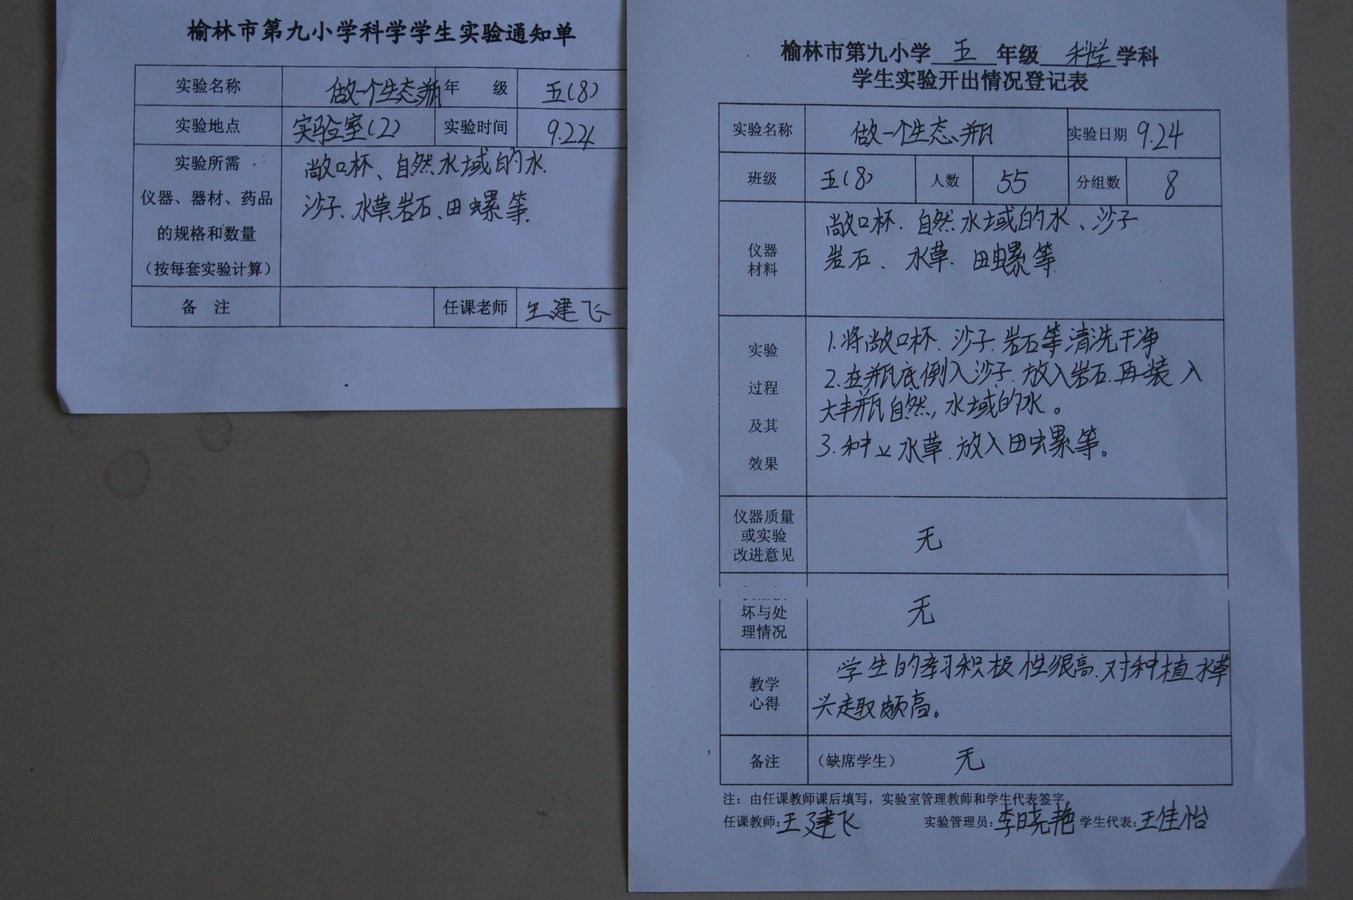 榆林市第九小学科学学生实验通知单
实验名称 做一个生态瓶 年 级 五(8)
实验地点 实验室(2) 实验时间 9.22
实验所需
仪器、器材、药品
的规格和数量
(按每套实验计算)
敞口杯、自然水域的水.
沙子、水草、岩石、田螺等.
备 注 任课老师 王建飞
榆林市第九小学 五 年级 科学 学科
学生实验开出情况登记表
实验名称 做一个生态瓶 实验日期 9.24
班级 五(8) 人数 55 分组数 8
仪器
材料
敞口杯.自然水域的水、沙子
岩石、水草.田螺等
实验
过程
及其
效果
1.将敞口杯.沙子.岩石等清洗干净
2.在瓶底倒入沙子.放入岩石.再装入
大半瓶自然,水域的水。
3.种立水草.放入田螺等。
仪器质量
或实验
改进意见
无
坏与处
理情况
无
教学
心得
学生的学习积极性很高.对种植水草
兴趣颇高。
备注 (缺席学生) 无
注:由任课教师课后填写,实验室管理教师和学生代表签字
任课教师:王建飞 实验管理员:李晓艳 学生代表:王佳怡